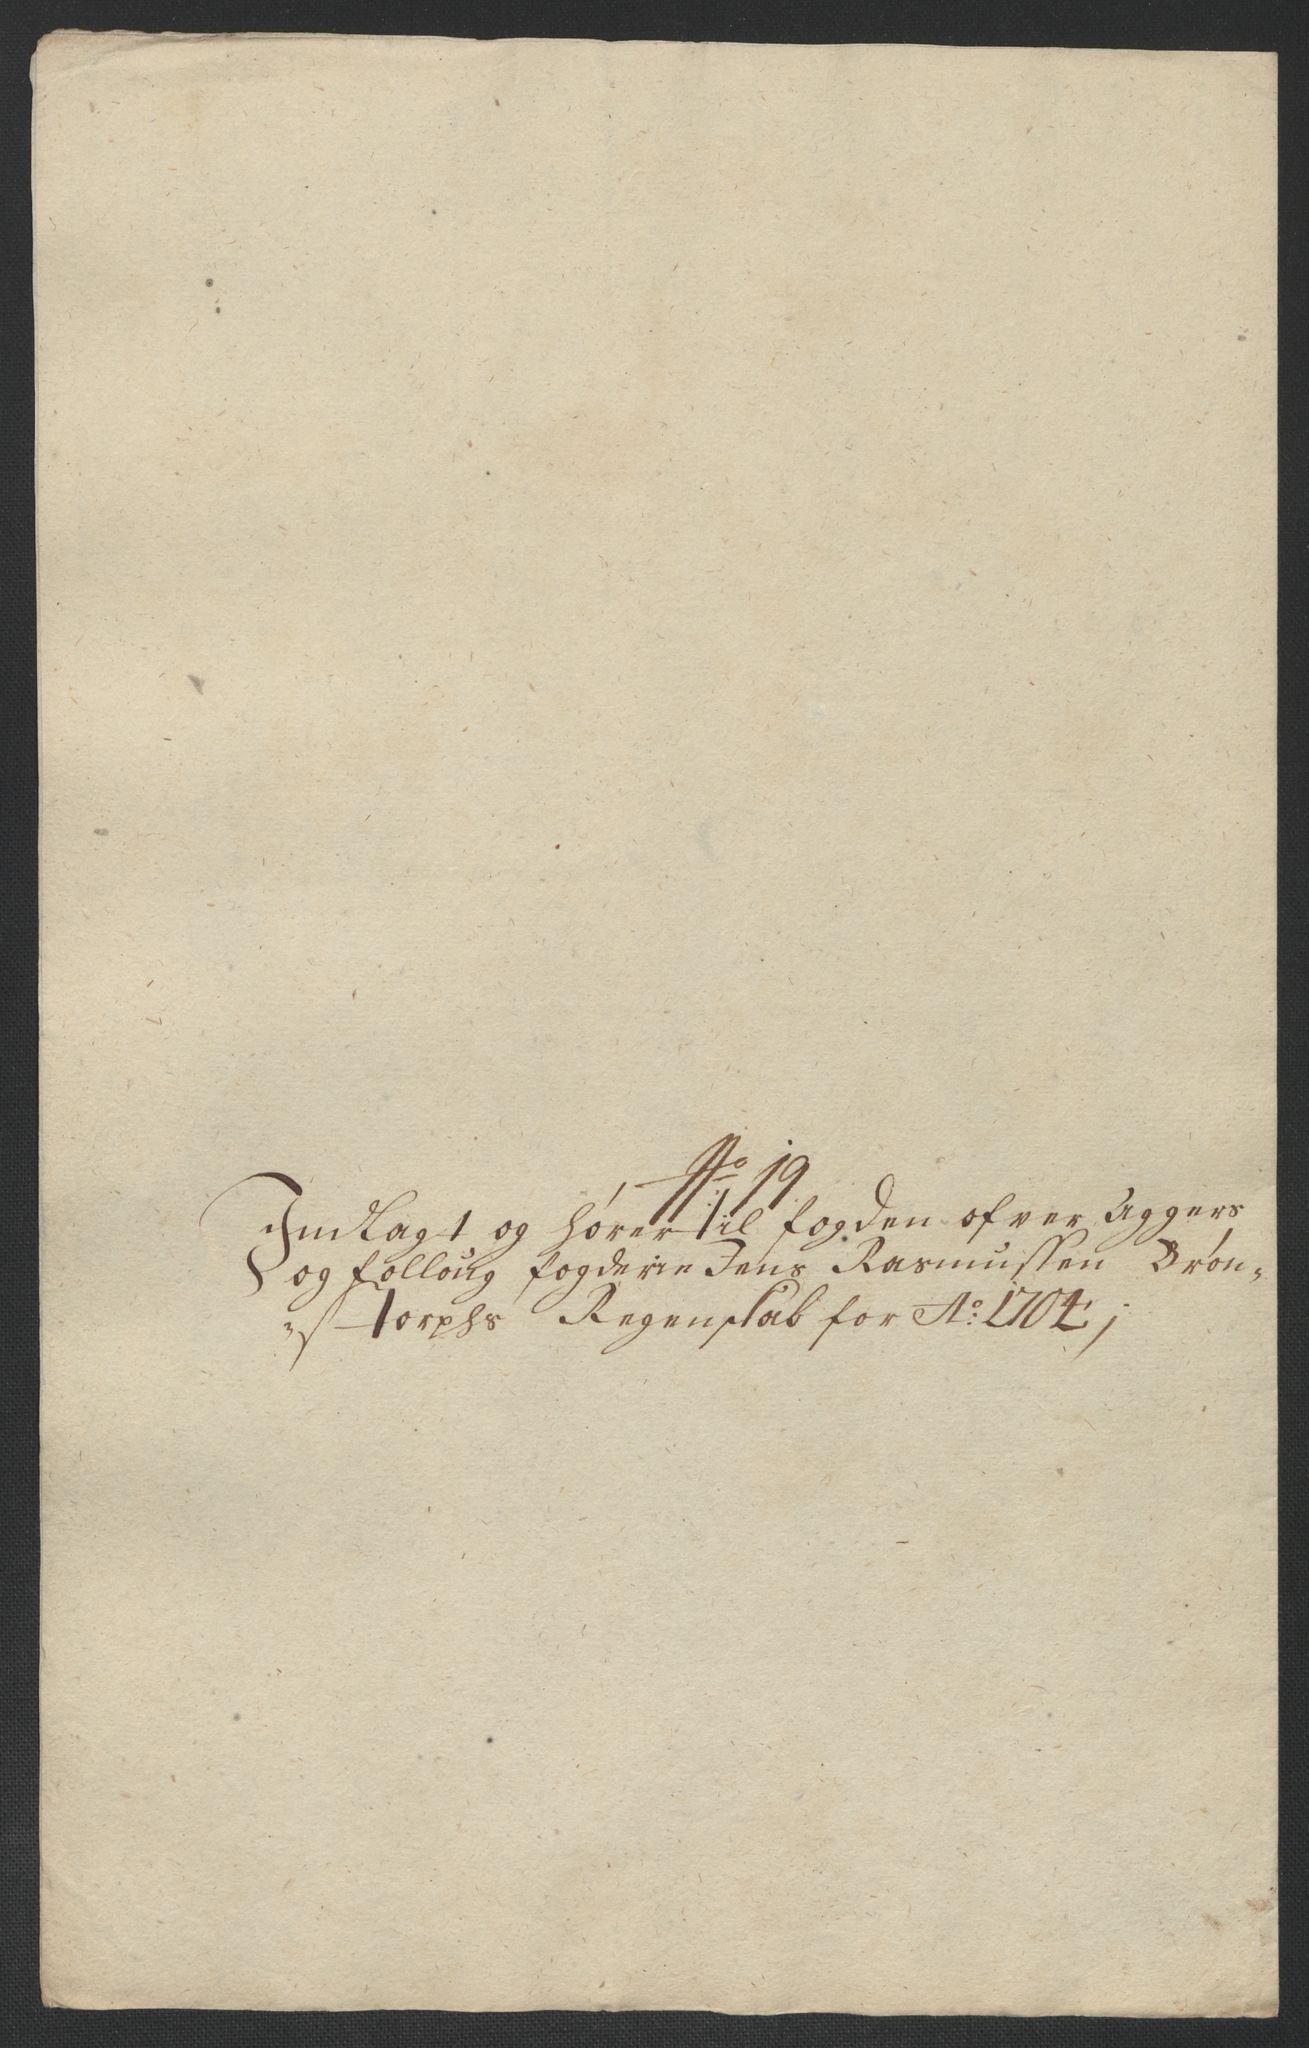 No 19
Indlagt og hører til fogden ofver Aggers
og folloug fogderie Jens Rasmussen Brøn„
„s torphs Regenskab for Ao: 1704;